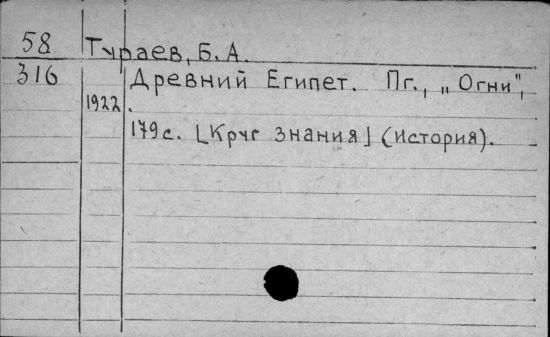 58 Тураев, Б. А.
316 Древний Египет. Пг., „Огни",
1922
179 с. [Круг знания] (история).